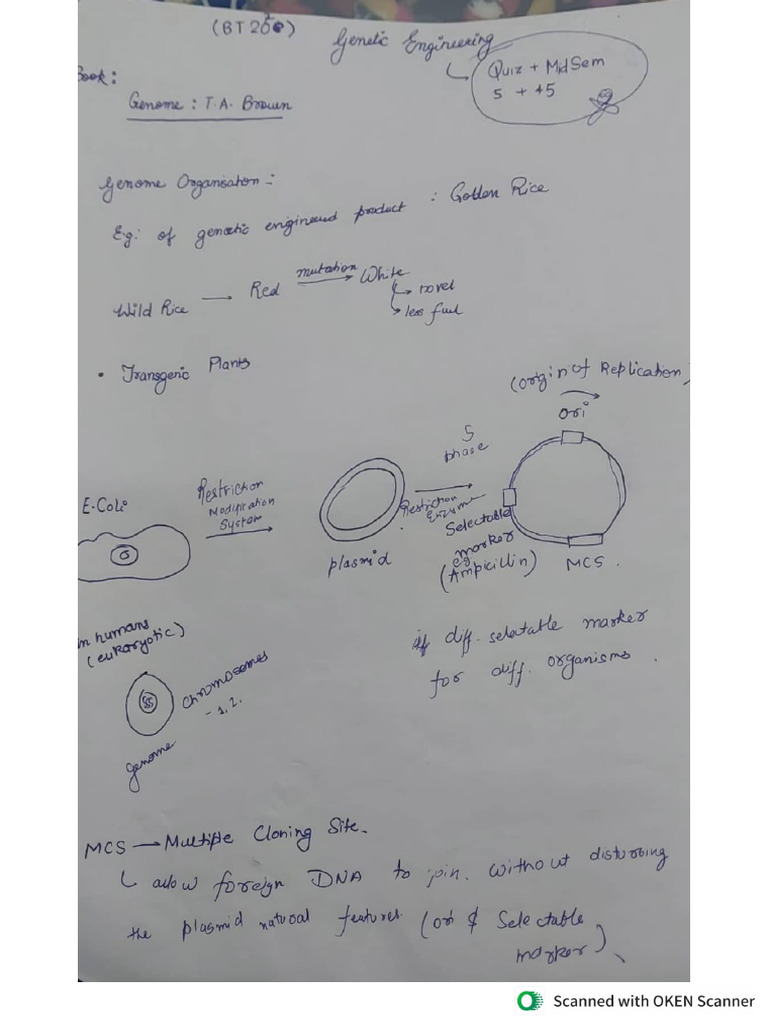 (BT 250)
Genetic Engineering
Quiz + MidSem
5 + 45
Book:
Genome : T.A. Brown
Genome Organisation :-
E.g: of genetic engineered product : Golden Rice
Wild Rice → Red mutation → White
↳ novel
↳ less fuel
• Transgenic Plants
(Orgin of Replication)
Ori
S
phase
E.Coli
Restriction
Modification
System
plasmid
Restriction
Enzyme
Selectable
marker
e.g.
(Ampicillin)
MCS.
in humans
(eukaryotic)
Chromosomes
- 1, 2.
genome
if diff. selectable marker
for diff. organisms.
MCS → Multiple Cloning Site.
↳ allow foreign DNA to join. without disturbing
the plasmid natural features. (ori & Selectable
marker)
Scanned with OKEN Scanner